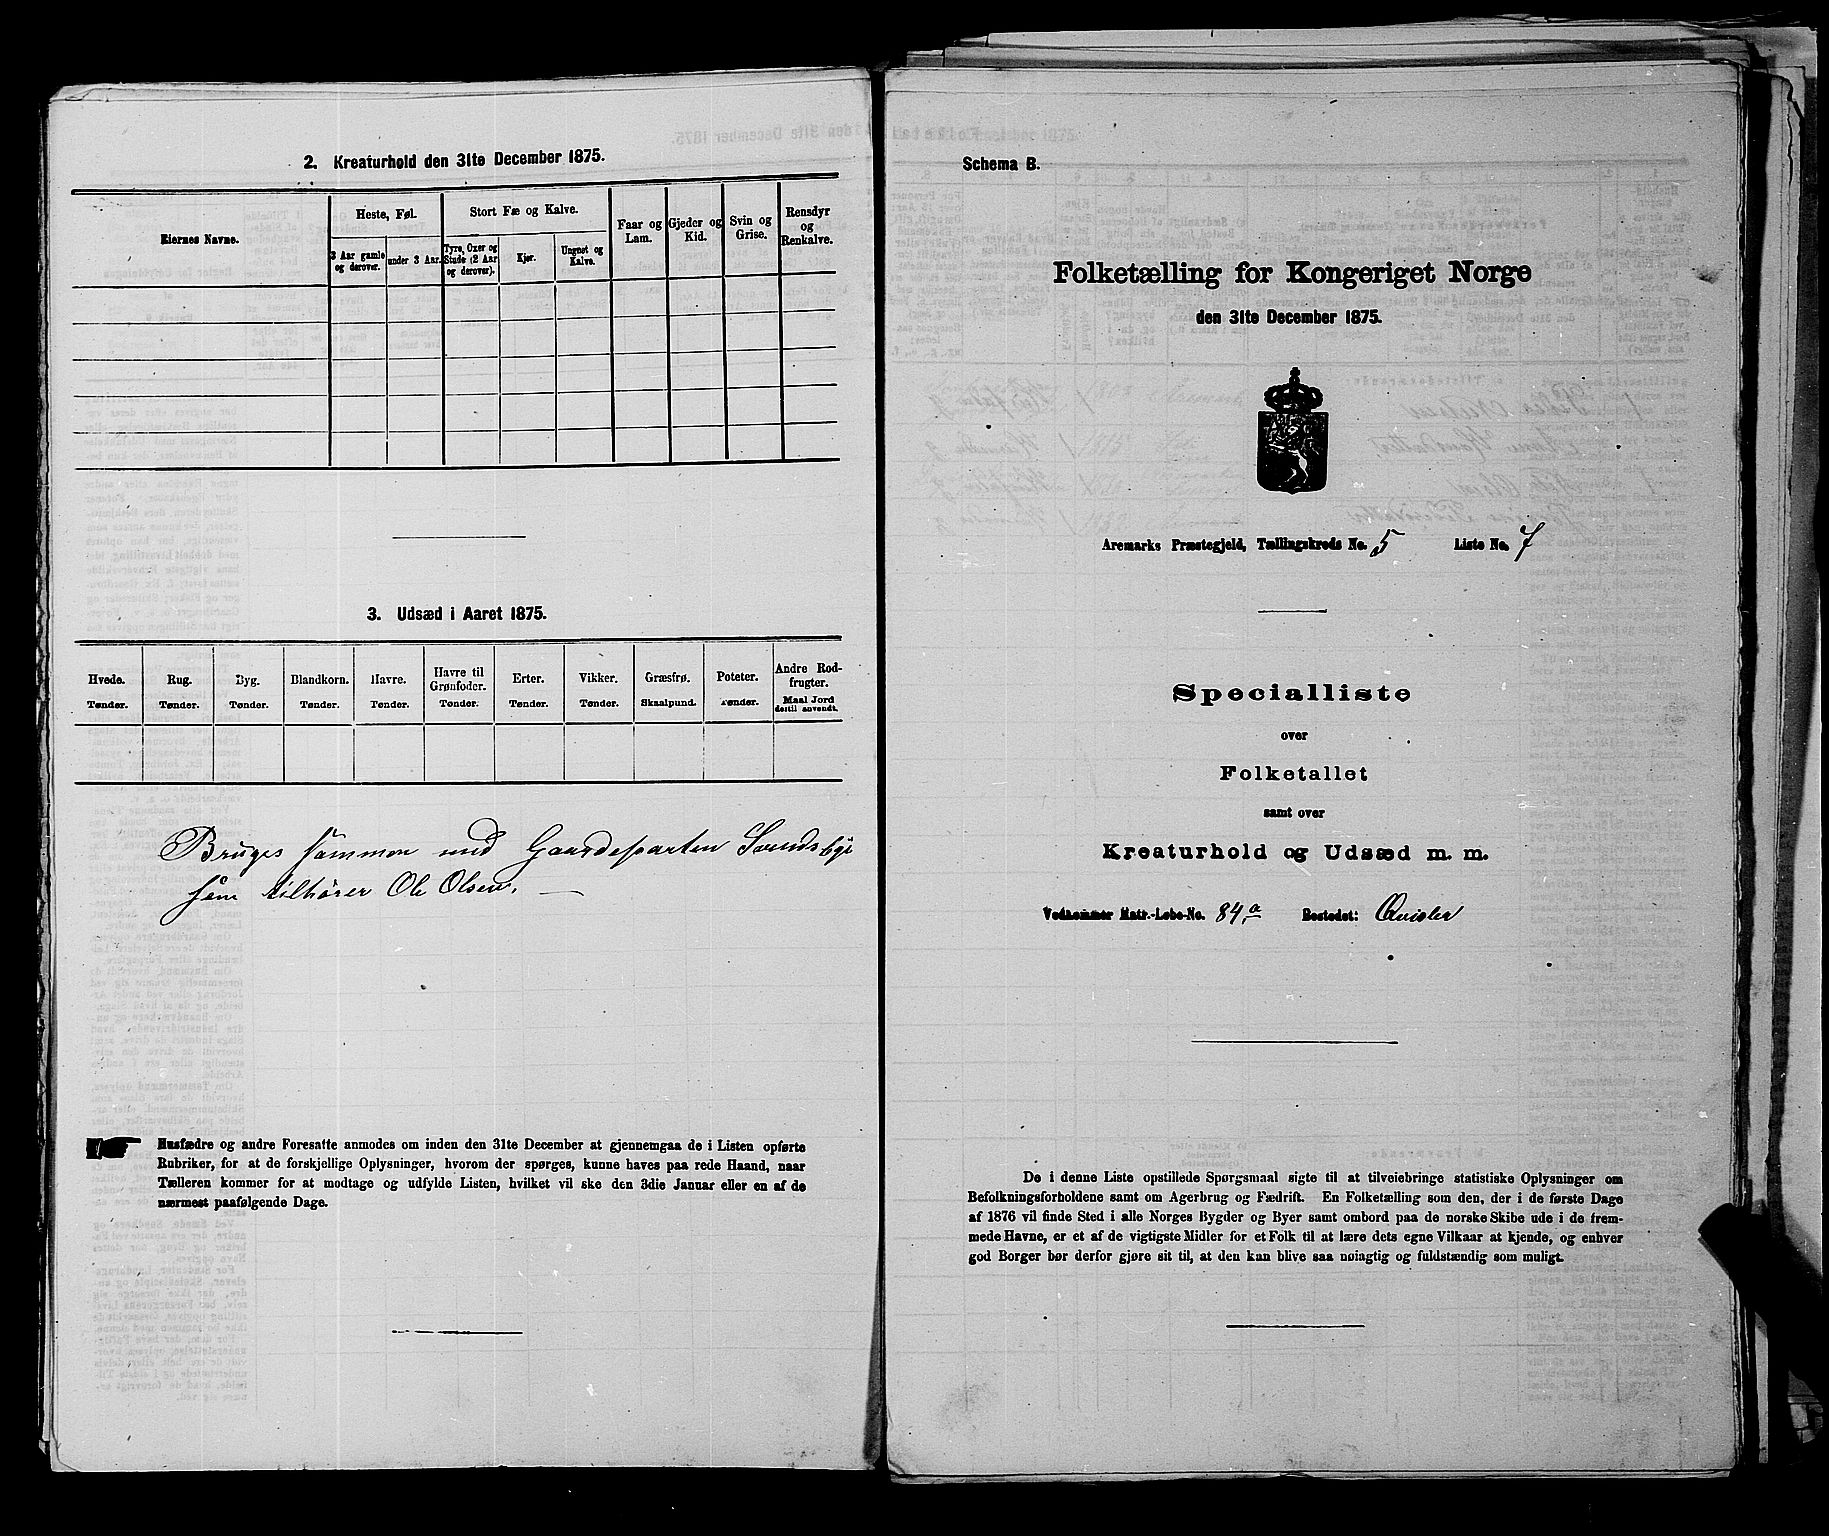 2. Kreaturhold den 31te December 1875.
Eiernes Navne.
Heste, Føl.
3 Aar gamle og derover.
under 3 Aar.
Stort Fæ og Kalve.
Tyre, Oxer og Stude (2 Aar og derover).
Kjør.
Ungnøt og Kalve.
Faar og Lam.
Gjeder og Kid.
Svin og Grise.
Rensdyr og Renkalve.
3. Udsæd i Aaret 1875.
Hvede. Rug. Byg. Blandkorn. Havre. Havre til Grønfoder. Erter. Vikker. Græsfrø. Poteter. Andre Rodfrugter.
Tønder. Tønder. Tønder. Tønder. Tønder. Tønder. Tønder. Tønder. Skaalpund. Tønder. Maal Jord dertil anvendt.
Bruges sammen med Gaardeparten Svendsbye
som tilhører Ole Olsen. —
Husfædre og andre Foresatte anmodes om inden den 31te December at gjennemgaa de i Listen opførte
Rubriker, for at de forskjellige Oplysninger, hvorom der spørges, kunne haves paa rede Haand, naar
Tælleren kommer for at modtage og udfylde Listen, hvilket vil ske den 3die Januar eller en af de
nærmest paafølgende Dage.
Schema B.
Folketælling for Kongeriget Norge
den 31te December 1875.
Aremarks Præstegjeld, Tællingskreds No. 5 Liste No. 7
Specialliste
over
Folketallet
samt over
Kreaturhold og Udsæd m. m.
Vedkommer Matr.-Løbe-No. 84.a Bostedet: Qvisler
De i denne Liste opstillede Spørgsmaal sigte til at tilveiebringe statistiske Oplysninger om
Befolkningsforholdene samt om Agerbrug og Fædrift. En Folketælling som den, der i de første Dage
af 1876 vil finde Sted i alle Norges Bygder og Byer samt ombord paa de norske Skibe ude i de frem-
mede Havne, er et af de vigtigste Midler for et Folk til at lære dets egne Vilkaar at kjende, og enhver
god Borger bør derfor gjøre sit til, at den kan blive saa nøiagtig og fuldstændig som muligt.